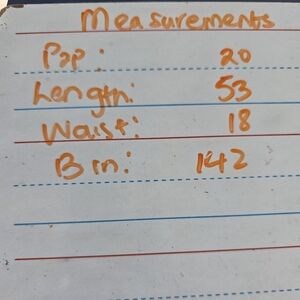 Measurements
Pap: 20
Length: 53
Waist: 18
B m: 142